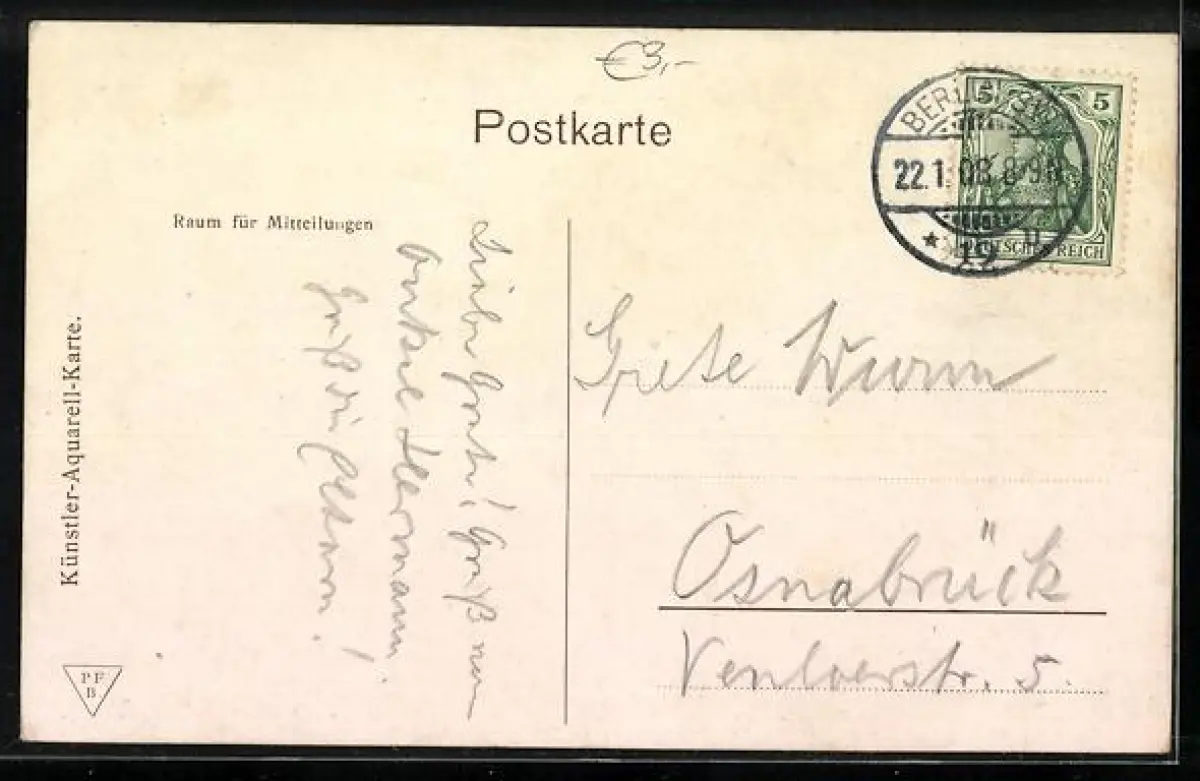 €3,-
Postkarte
BERLIN S.W.
22.1.08.8-9N
* 19 u
5 5
DEUTSCHES REICH
Raum für Mitteilungen
Liebe Grete! Gruß von
Onkel Hermann.
Grüß die Eltern!
Grete Wurm
Osnabrück
Venloerstr. 5.
Künstler-Aquarell-Karte.
PF
B